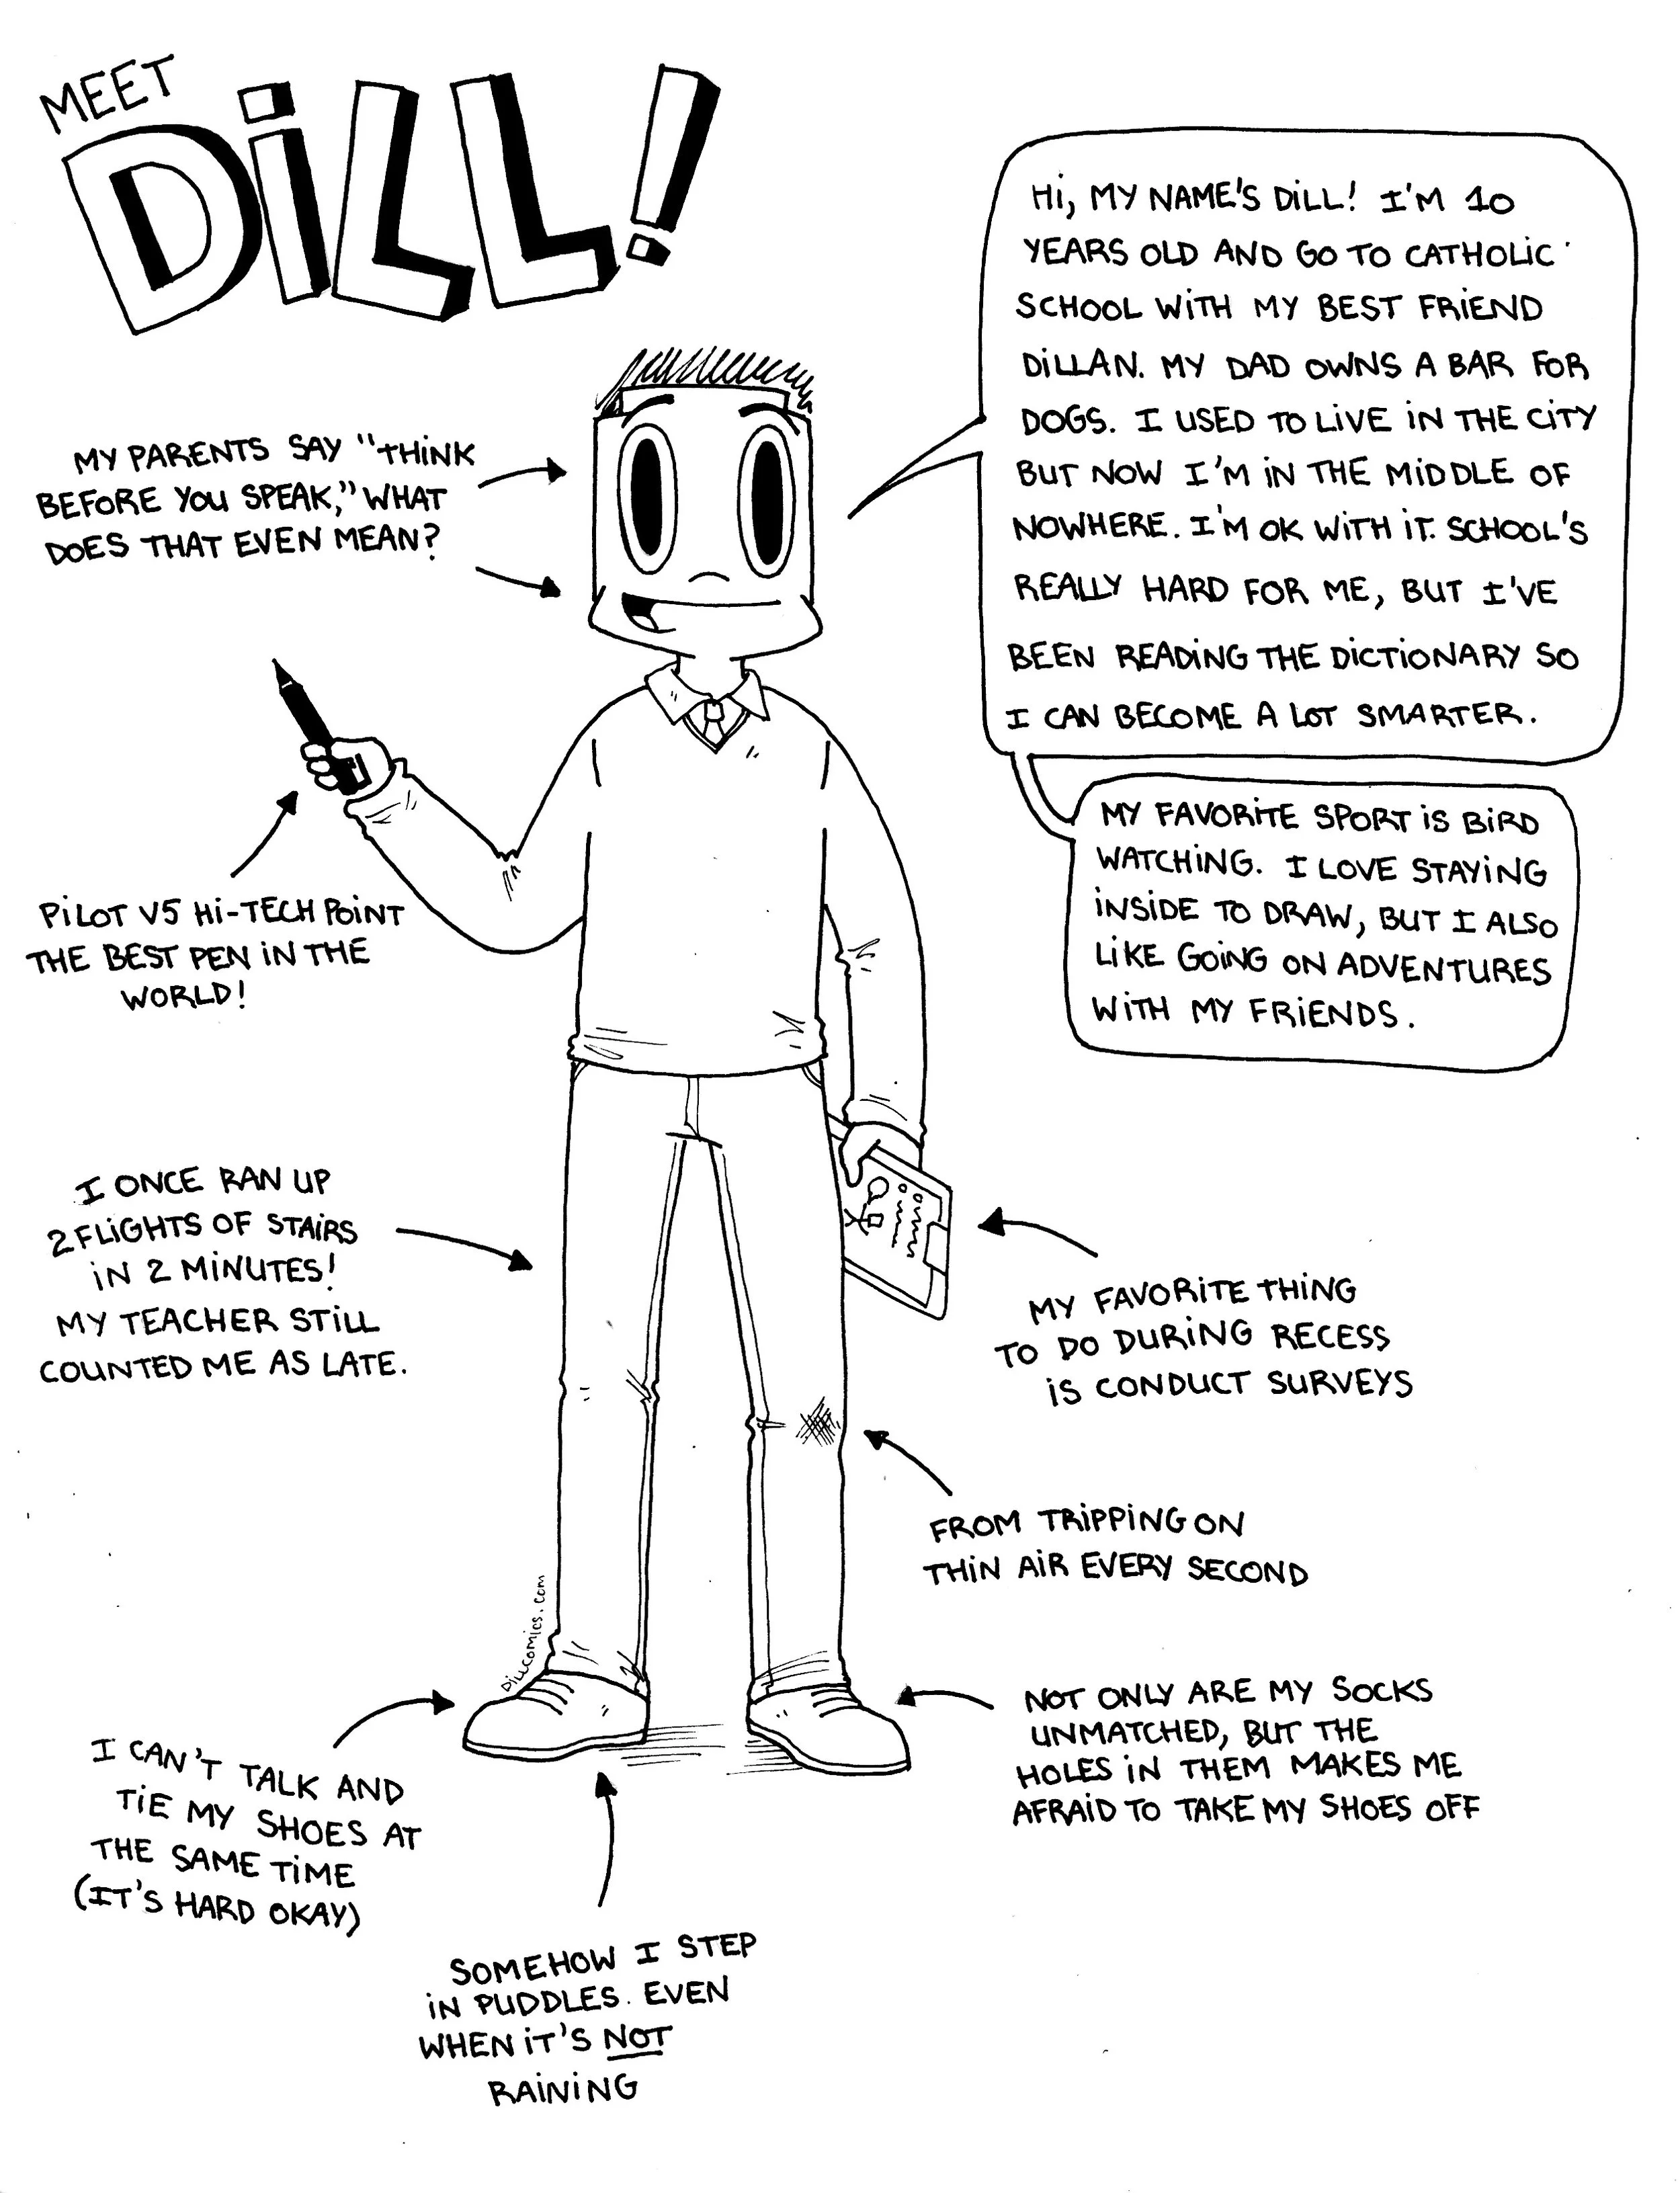 MEET
DiLL!
Hi, MY NAME'S DiLL! I'M 10
YEARS OLD AND GO TO CATHOLiC
SCHOOL WiTH MY BEST FRiEND
DiLLAN. MY DAD OWNS A BAR FOR
DOGS. I USED TO LiVE iN THE CiTY
BUT NOW I'M iN THE MiDDLE OF
NOWHERE. I'M OK WiTH iT. SCHOOL'S
REALLY HARD FOR ME, BUT I'VE
BEEN READiNG THE DiCTiONARY SO
I CAN BECOME A LOT SMARTER.
MY FAVORiTE SPORT iS BiRD
WATCHiNG. I LOVE STAYiNG
iNSiDE TO DRAW, BUT I ALSO
LiKE GOiNG ON ADVENTURES
WiTH MY FRiENDS.
MY PARENTS SAY "THiNK
BEFORE YOU SPEAK," WHAT
DOES THAT EVEN MEAN?
PiLOT V5 Hi-TECH POiNT
THE BEST PEN iN THE
WORLD!
I ONCE RAN UP
2 FLiGHTS OF STAiRS
iN 2 MiNUTES!
MY TEACHER STiLL
COUNTED ME AS LATE.
MY FAVORiTE THiNG
TO DO DURiNG RECESS
iS CONDUCT SURVEYS
FROM TRiPPiNG ON
THiN AiR EVERY SECOND
DiLLCOMiCS.COM
NOT ONLY ARE MY SOCKS
UNMATCHED, BUT THE
HOLES iN THEM MAKES ME
AFRAiD TO TAKE MY SHOES OFF
I CAN'T TALK AND
TiE MY SHOES AT
THE SAME TiME
(IT'S HARD OKAY)
SOMEHOW I STEP
iN PUDDLES. EVEN
WHEN iT'S NOT
RAiNiNG